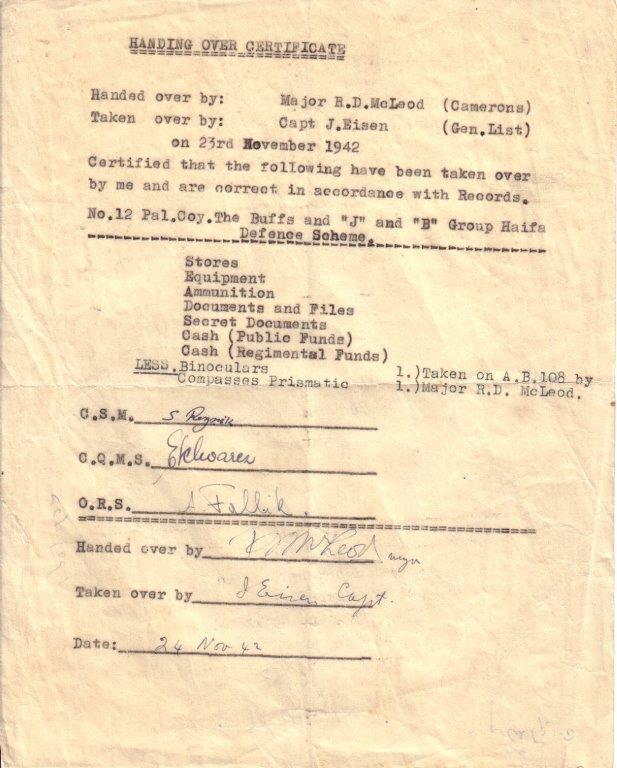 HANDING OVER CERTIFICATE
Handed over by: Major R.D.McLeod (Camerons)
Taken over by: Capt J.Eisen (Gen.List)
on 23rd November 1942
Certified that the following have been taken over
by me and are correct in accordance with Records.
No.12 Pal.Coy.The Buffs and "J" and "B" Group Haifa
Defence Scheme.
Stores
Equipment
Ammunition
Documents and Files
Secret Documents
Cash (Public Funds)
Cash (Regimental Funds)
LESS.Binoculars 1.)Taken on A.B.108 by
Compasses Prismatic 1.)Major R.D. McLeod.
C.S.M. S
C.Q.M.S.
O.R.S. Fallik.
Handed over by McLeod
Taken over by J Eisen Capt.
Date: 24 Nov 42